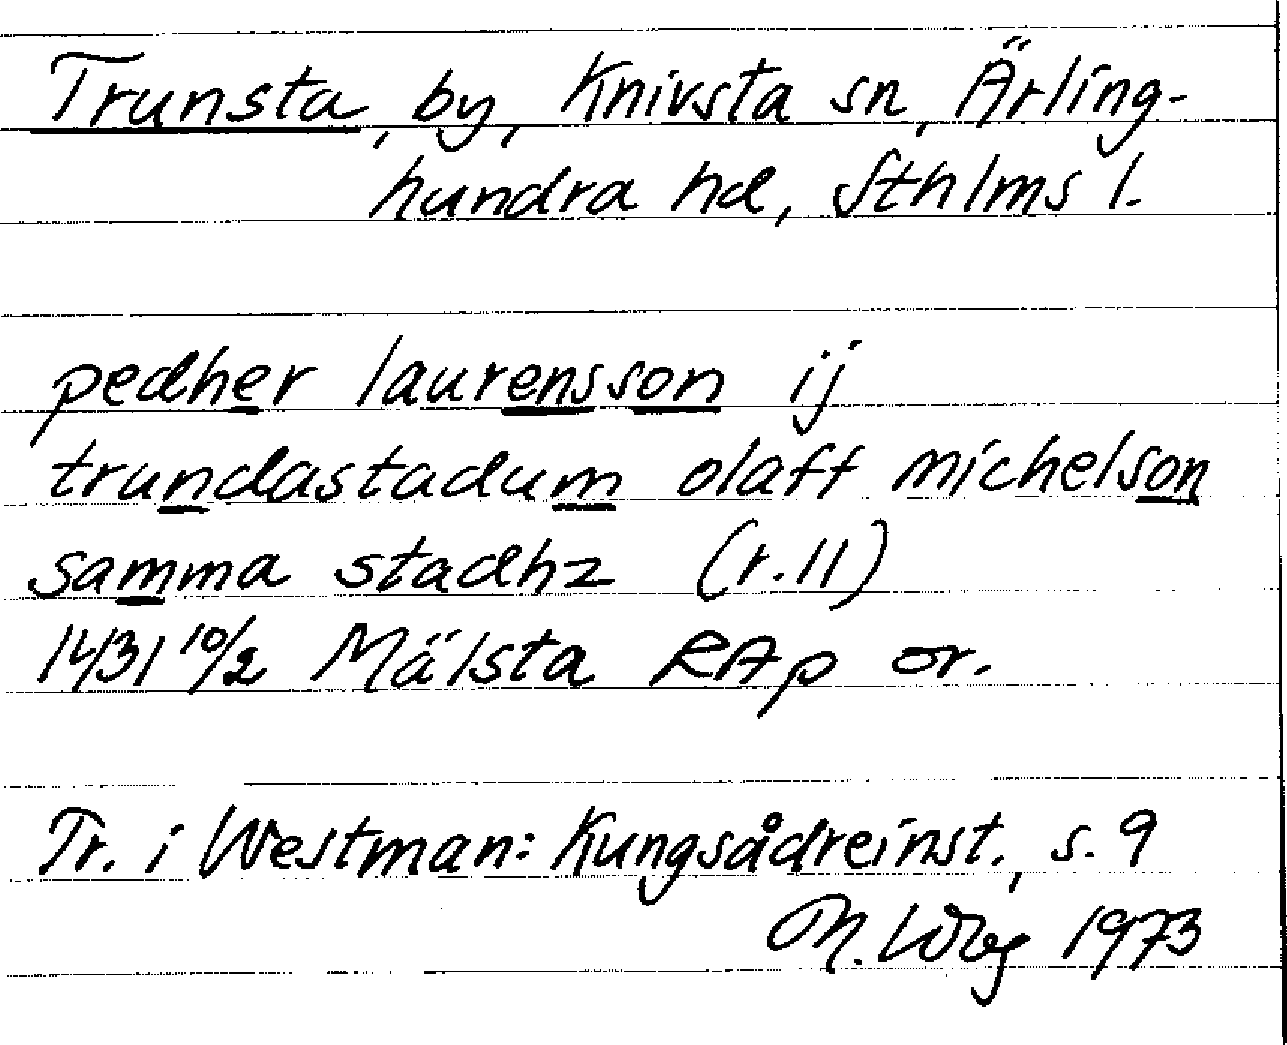 Trunsta, by, Knivsta sn, Ärling-
hundra hd, Sthlms l.
pedher laurensson ij
trundastadum olaff michelson
samma stadhz (r. 11)
1431 10/2 Mälsta RAp or.
Tr. i Westman: Kungsådreinst., s. 9
M. Wbg 1973